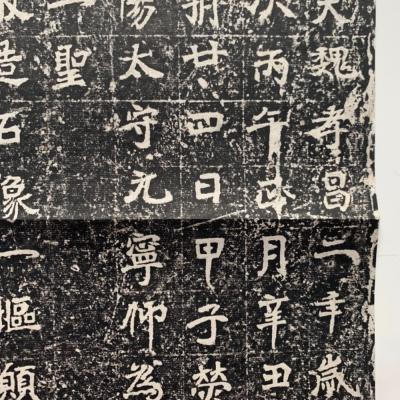 大魏孝昌二年歲
次丙午正月辛丑
朔廿四日甲子榮
陽太守元寧仰為
二聖
造石像一軀願